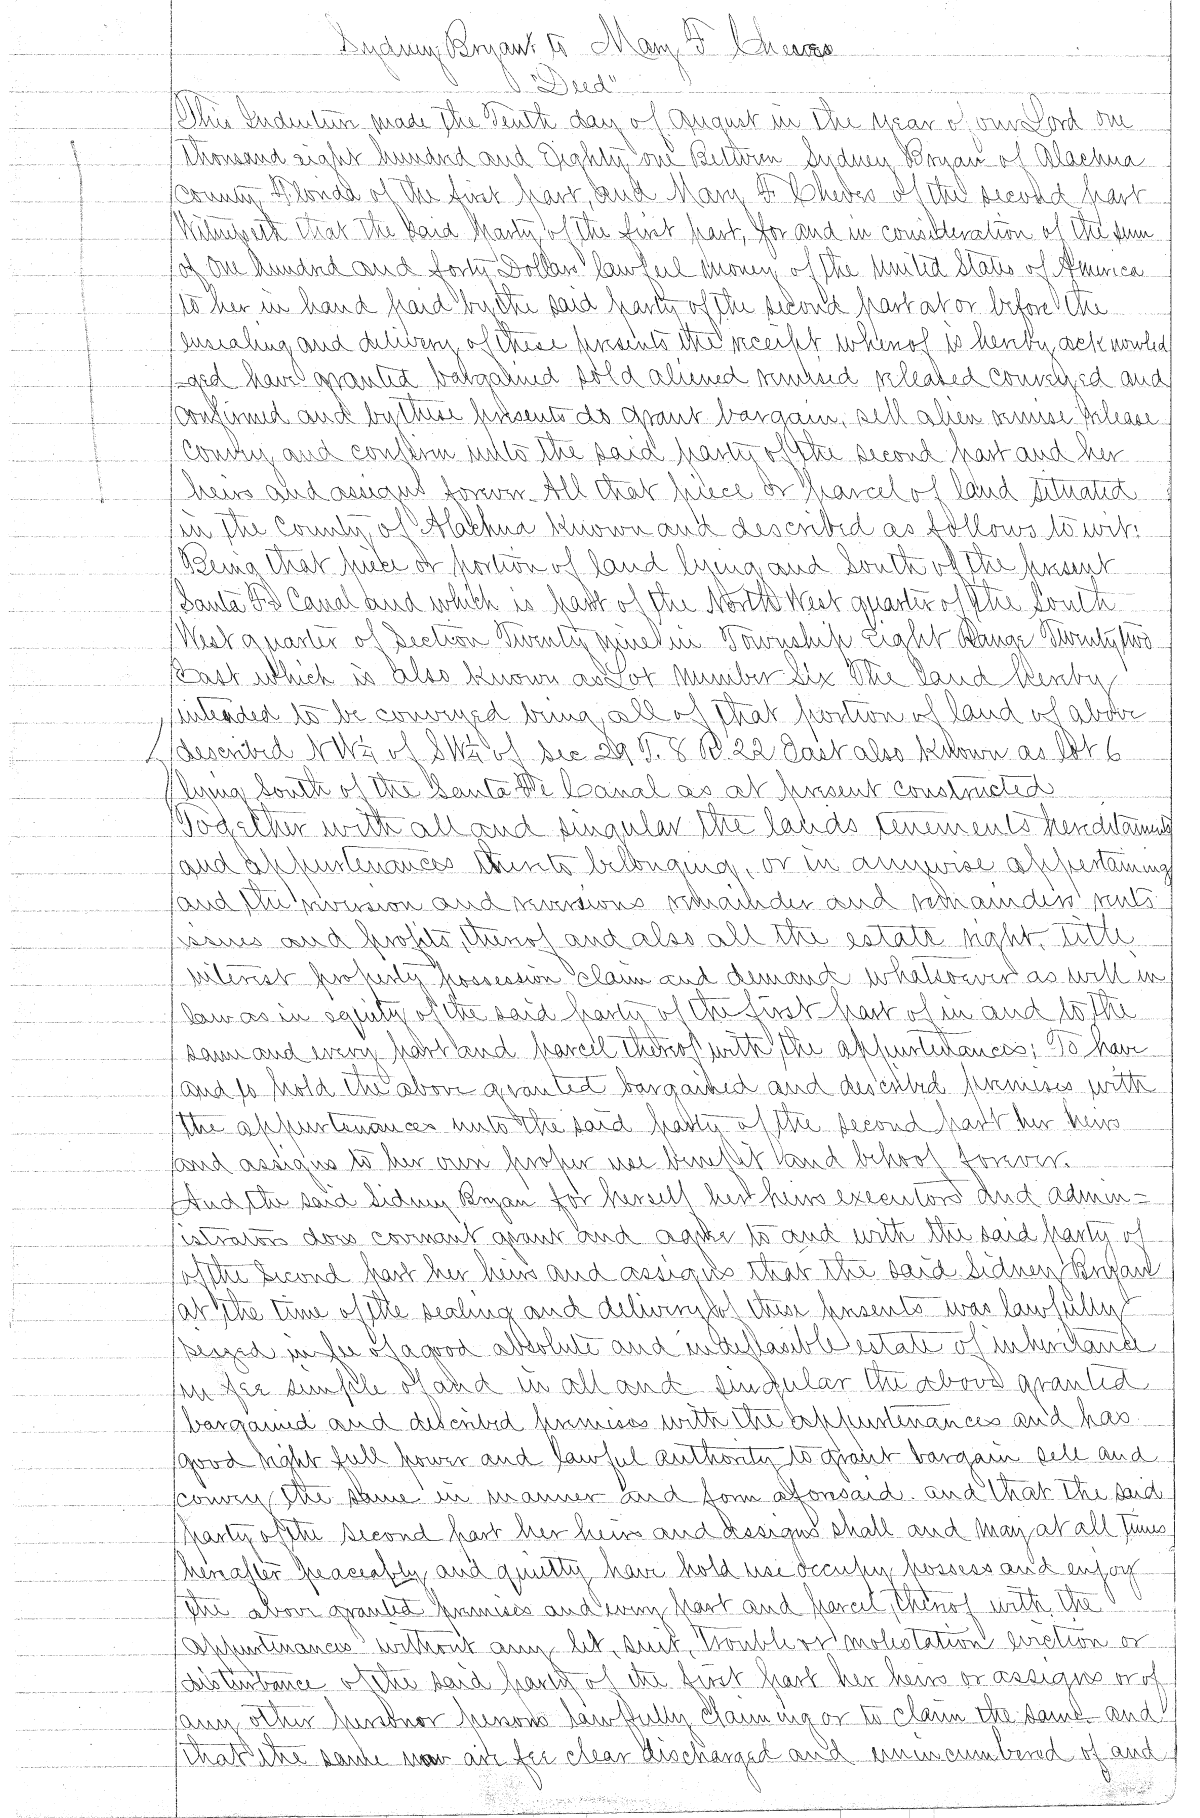 Sydney Bryan to Mary F Cheves
"Deed"
This Indenture made the Tenth day of August in the year of our Lord one
thousand eight hundred and Eighty one Between Sydney Bryan of Alachua
County Florida of the first part, and Mary F Cheves of the second part
Witnesseth that the said party of the first part, for and in consideration of the sum
of One hundred and forty Dollars lawful money of the United States of America
to her in hand paid by the said party of the second part at or before the
ensealing and delivery of these presents the receipt whereof is hereby acknowled
-ged have granted bargained sold aliened remised released conveyed and
confirmed and by these presents do grant bargain, sell alien remise release
convey and confirm unto the said party of the second part and her
heirs and assigns forever. All that piece or parcel of land situated
in the County of Alachua known and described as follows to wit:
Being that piece or portion of land lying and South of the present
Santa Fe Canal and which is part of the North West quarter of the South
West quarter of Section Twenty nine in Township Eight Range Twenty two
East which is also known as Lot Number Six The land hereby
intended to be conveyed being all of that portion of land of above
described NW¼ of SW¼ of Sec 29 T. 8 R 22 East also known as lot 6
lying South of the Santa Fe Canal as at present constructed
Together with all and singular the lands tenements hereditaments
and appurtenances thereto belonging, or in anywise appertaining
and the reversion and reversions remainder and remainders rents
issues and profits thereof and also all the estate right, title
interest property possession claim and demand whatsoever as well in
law as in equity of the said party of the first part of in and to the
same and every part and parcel thereof with the appurtenances; To have
and to hold the above granted bargained and described premises with
the appurtenances unto the said party of the second part her heirs
and assigns to her own proper use benefit and behoof forever.
And the said Sidney Bryan for herself her heirs executors and admin=
istrators does covenant grant and agree to and with the said party of
of the Second part her heirs and assigns that the said Sidney Bryan
at the time of the sealing and delivery of these presents was lawfully
seized in fee of a good absolute and indefeasible estate of inheritance
in fee simple of and in all and singular the above granted
bargained and described premises with the appurtenances and has
good right full power and lawful authority to grant bargain sell and
convey the same in manner and form aforesaid. and that the said
party of the second part her heirs and assigns shall and may at all times
hereafter peaceably and quietly have hold use occupy possess and enjoy
the above granted premises and every part and parcel thereof with the
appurtenances without any let, suit, trouble or molestation eviction or
disturbance of the said party of the first part her heirs or assigns or of
any other person or persons lawfully claiming or to claim the same and
that the same now are fee clear discharged and unincumbered of and